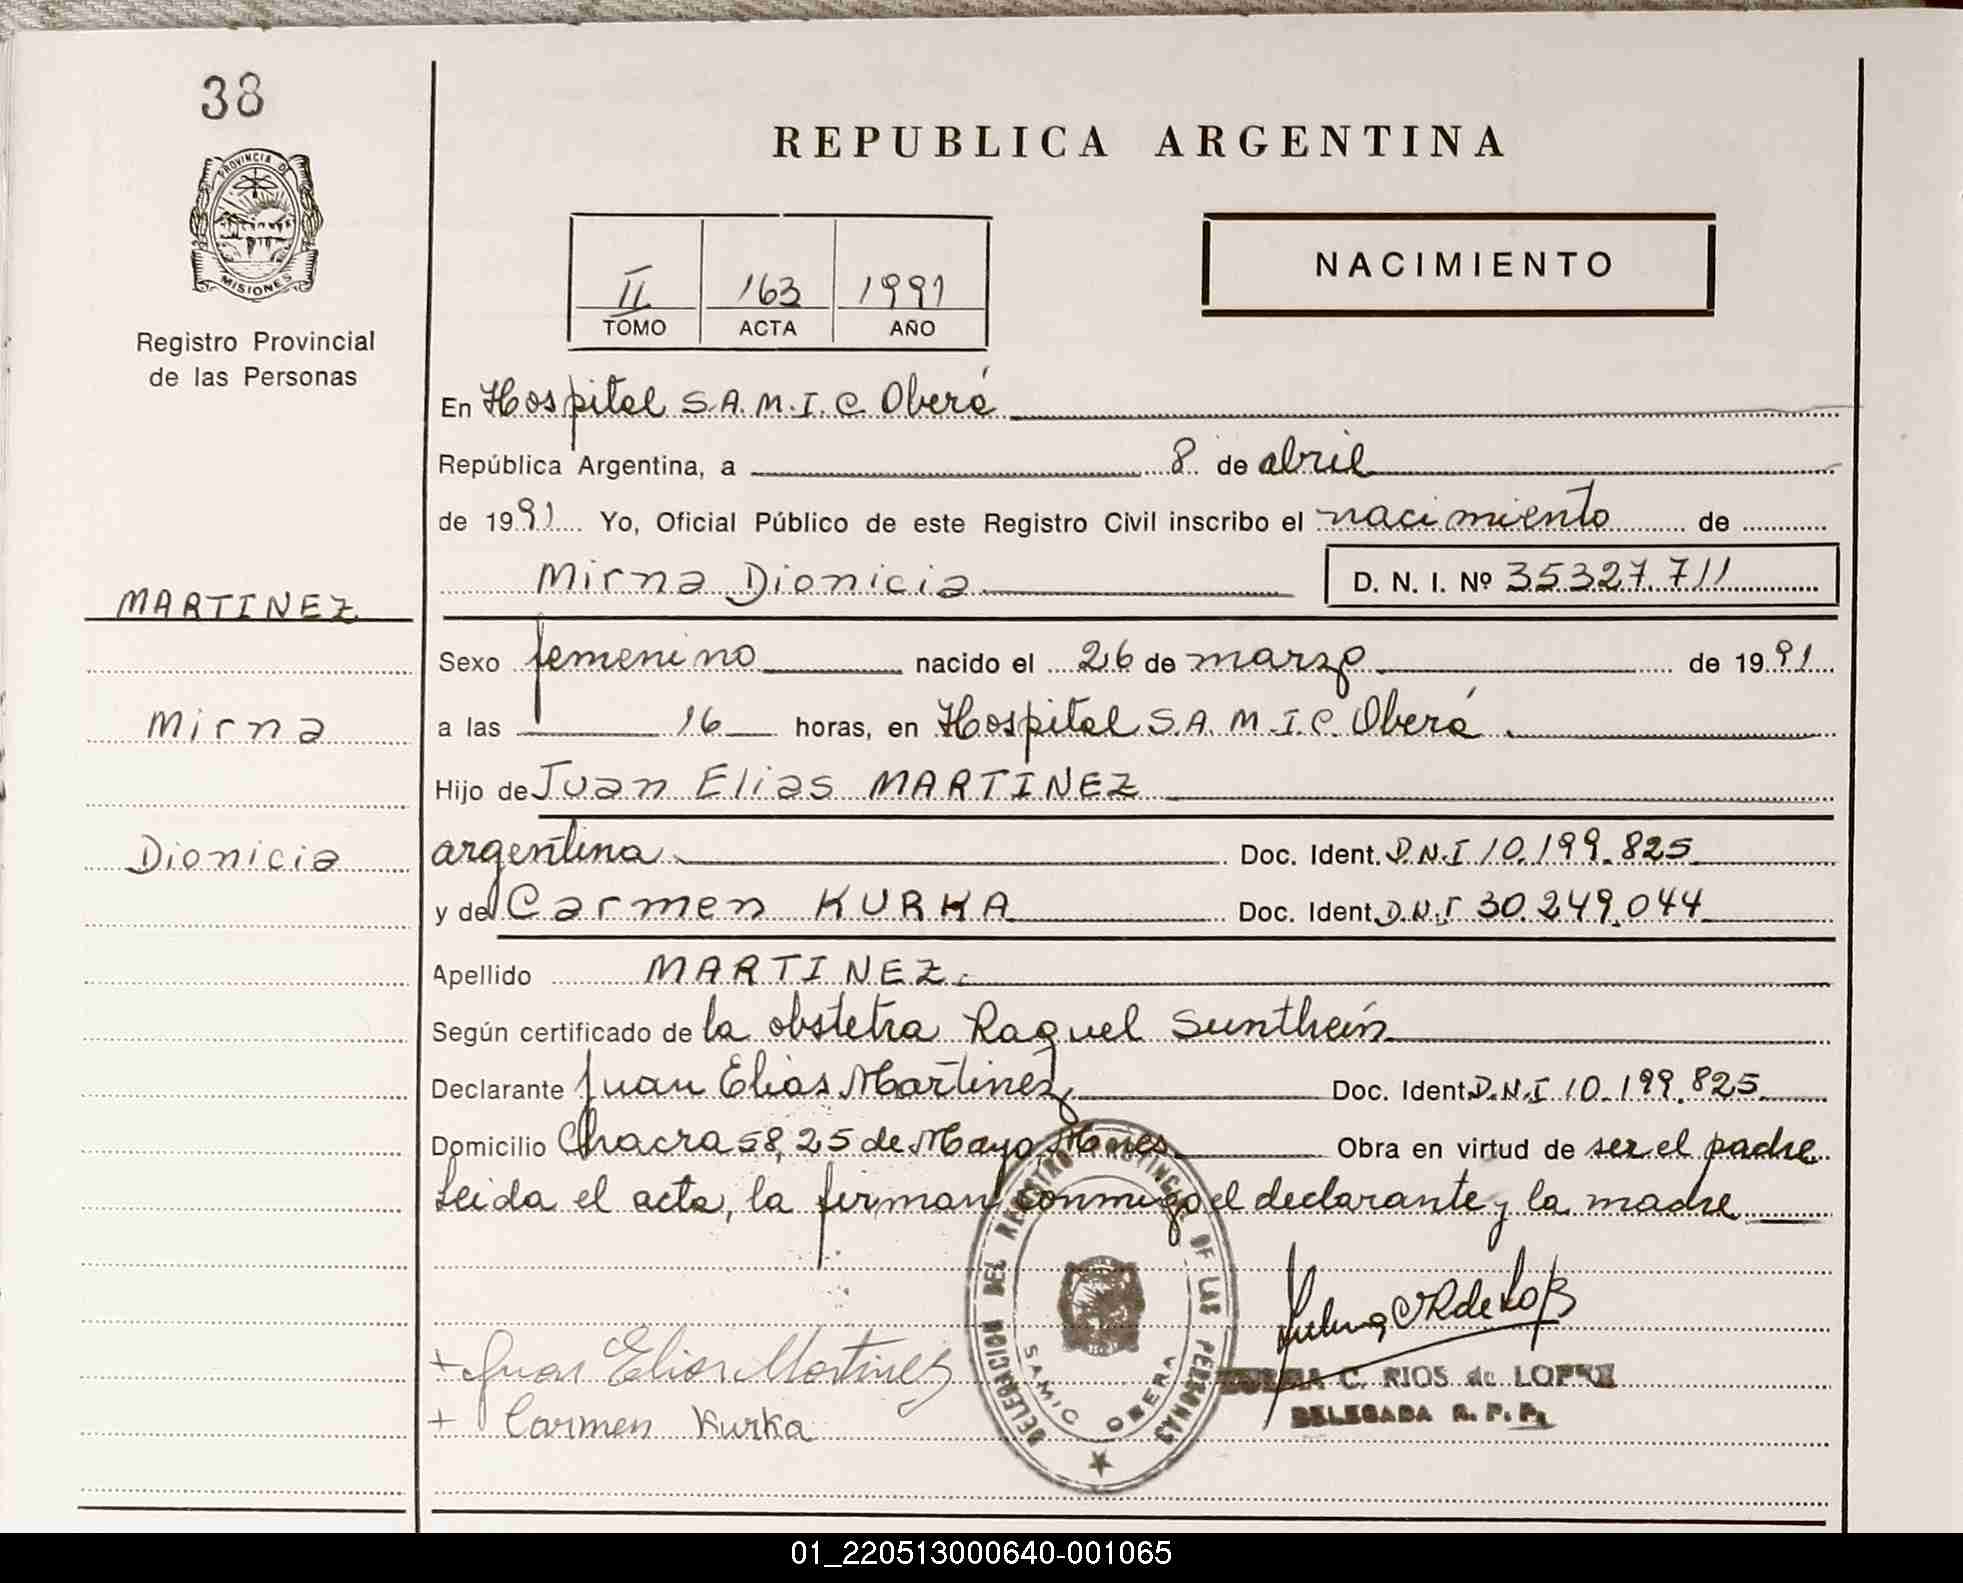 38
PROVINCIA DE
MISIONES
Registro Provincial
de las Personas
REPUBLICA ARGENTINA
II 163 1991
TOMO ACTA AÑO
NACIMIENTO
En Hospital S.A.M.I.C. Oberá
República Argentina, a 8 de abril
de 1991 Yo, Oficial Público de este Registro Civil inscribo el nacimiento de
Mirna Dionicia D. N. I. Nº 35.327.711
MARTINEZ
Mirna
Dionicia
Sexo femenino nacido el 26 de marzo de 1991
a las 16 horas, en Hospital S.A.M.I.C. Oberá
Hijo de Juan Elias MARTINEZ
argentina Doc. Ident. D.N.I 10.199.825
y de Carmen KURKA Doc. Ident. D.N.I 30.249.044
Apellido MARTINEZ
Según certificado de la obstetra Raquel
Declarante Juan Elias Martinez Doc. Ident. D.N.I 10.199.825
Domicilio Chacra 58, 25 de Mayo Mnes Obra en virtud de ser el padre
Leida el acta, la firman conmigo el declarante y la madre
DELEGACION DEL REGISTRO PROVINCIAL DE LAS PERSONAS
SAMIC OBERA
+ Juan Elias Martinez
+ Carmen Kurka
C. RIOS de LOPEZ
DELEGADA R. P. P.
01_220513000640-001065